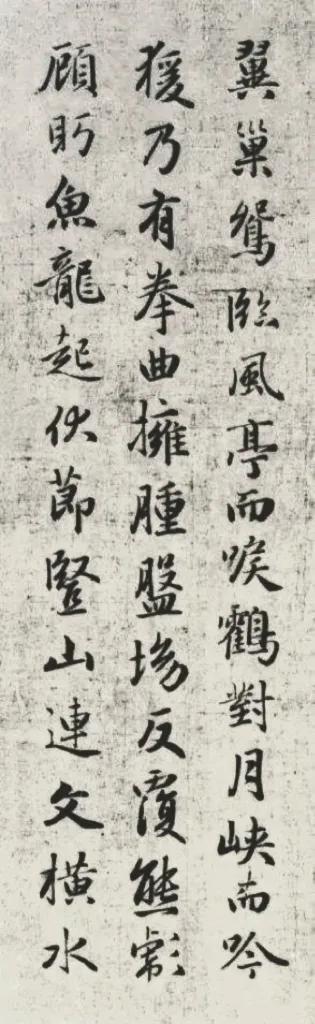 翼巢鴛臨風亭而唳鶴對月峽而吟
猨乃有拳曲擁腫盤坳反覆熊彪
顧眄魚龍起伏節豎山連文橫水